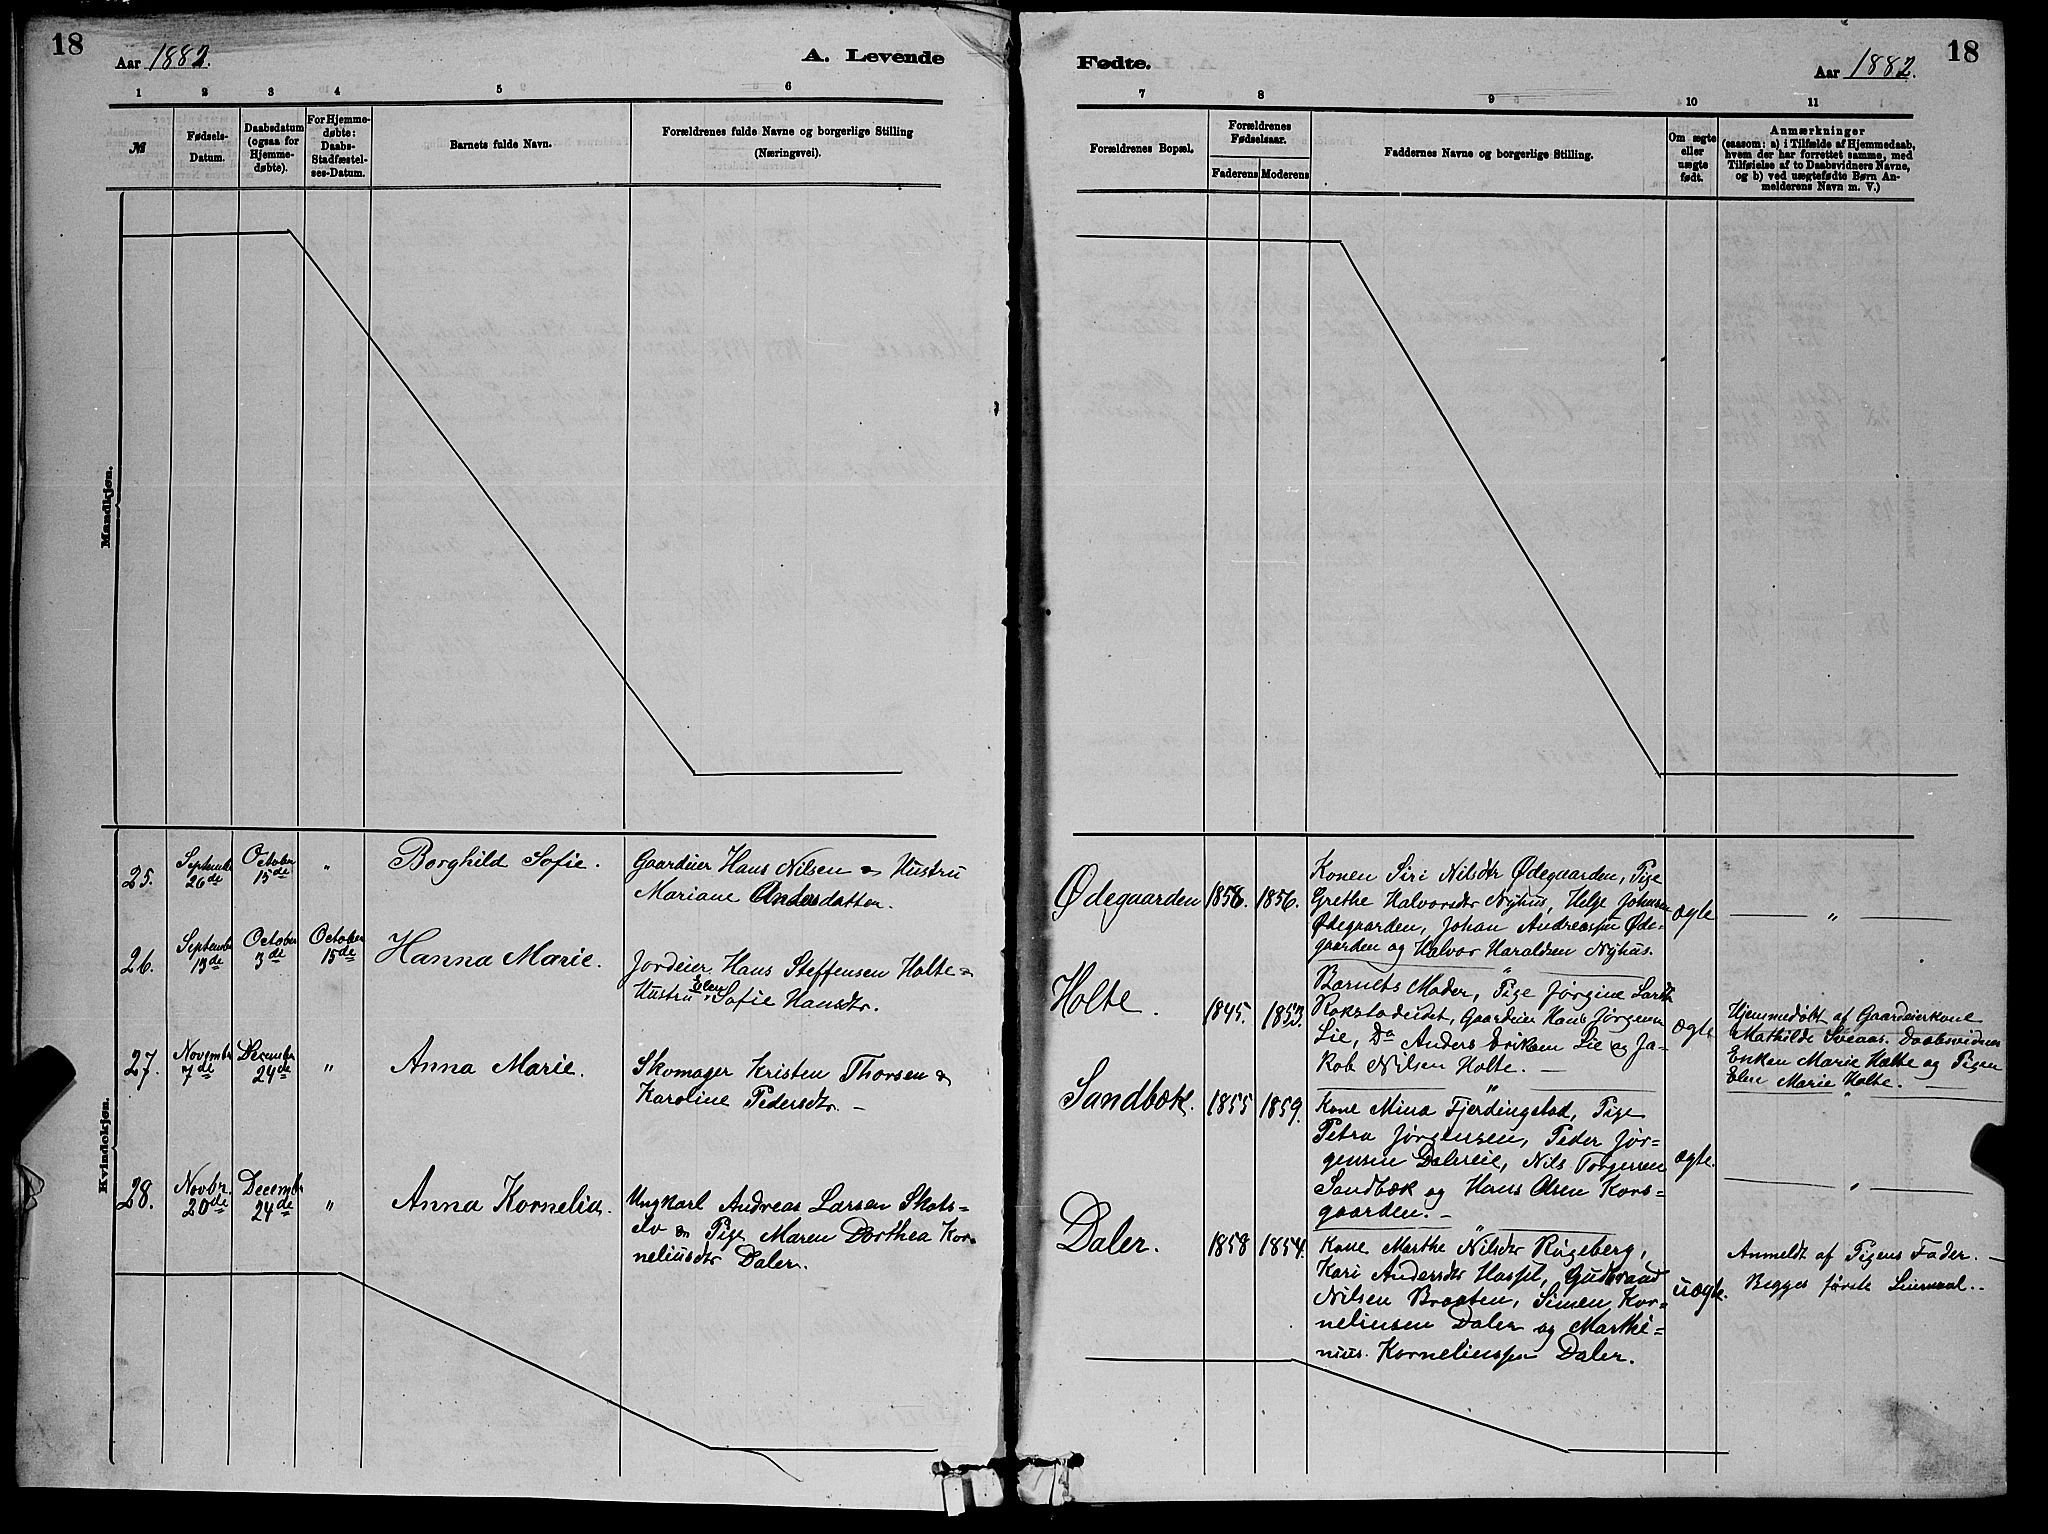 18
Aar 1882.
A. Levende
1 2 3 4 5 6
№
Fødsels-
Datum.
Daabsdatum
(ogsaa for
Hjemme-
døbte).
For Hjemme-
døbte:
Daabs-
Stadfæstel-
ses-Datum.
Barnets fulde Navn.
Forældrenes fulde Navne og borgerlige Stilling
(Næringsvei).
Mandkjøn.
Kvindekjøn.
25.
Septembr
26de
October
15de
"
Borghild Sofie.
Gaardeier Hans Nilsen & Hustru
Mariane Andersdatter.
26.
Septembr
13de
October
3de
October
15de
Hanna Marie.
Jordeier Hans Steffensen Holte &
Hustru Elen Sofie Hansdtr.
27.
Novembr
7de
December
24de
"
Anna Marie.
Skomager Kristen Thorsen &
Karoline Pedersdtr. —
28.
Novbr.
20de
Decembr
24de
"
Anna Kornelia.
Ungkarl Andreas Larsen Skots-
elv & Pige Maren Dorthea Kor-
neliusdtr Daler.
Fødte.
Aar 1882.
18
7 8 9 10 11
Forældrenes Bopæl.
Forældrenes
Fødselsaar.
Faderens
Moderens
Faddernes Navne og borgerlige Stilling.
Om ægte
eller
uægte
født.
Anmærkninger
(saasom: a) i Tilfælde af Hjemmedaab,
hvem der har forrettet samme, med
Tilføielse af to Daabsvidners Navne,
og b) ved uægtefødte Børn An-
melderens Navn m. V.)
Ødegaarden
1858.
1856.
Konen Siri Nilsdtr Ødegaarden, Pige
Grethe Halvorsdtr Nyhus, Helge Johnsen
Ødegaarden, Johan Andreassen Øde-
gaarden og Halvor Haraldsen Nyhus.
ægte
— " —
Holte.
1845.
1853.
Barnets Moder, Pige Jørgine Larsdtr
Rokstadeidet, Gaardeier Hans Jørgensen
Lie, Do Anders Eriksen Lie og Ja-
kob Nilsen Holte. —
ægte
Hjemmedøbt af Gaardeierkone
Mathilde Sveaas. Daabsvidner
Enken Marie Holte og Pigen
Elen Marie Holte. —
Sandbæk.
1855
1859.
Kone Mina Fjerdingstad, Pige
Petra Jørgensen, Peder Jør-
gensen Dalereie, Nils Torgersen
Sandbæk og Hans Olsen Kors-
gaarden. —
ægte.
— " —
Daler.
1858
1854.
Kone Marthe Nilsdtr Rygeberg,
Kari Andersdtr Hassel, Gudbrand
Nilsen Braaten, Simen Kor-
neliusen Daler og Marthi-
nius Korneliussen Daler.
uægte.
Anmeldt af Pigens Fader. —
Begges første Leiermaal.